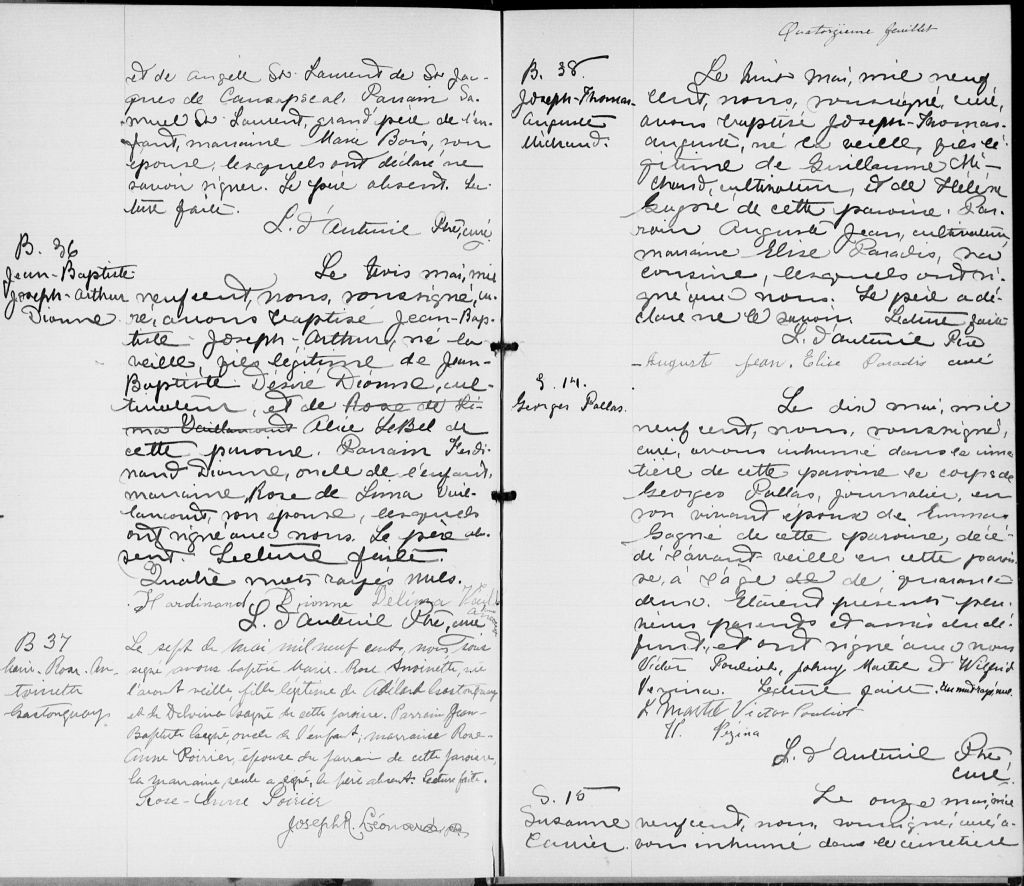 et de Angèle St. Laurent de St. Jac-
ques de Causapscal. Parrain Sa-
muel St. Laurent, grand père de l'en-
fant, marraine Marie Bois, son
épouse, lesquels ont déclaré ne
savoir signer. Le père absent. Lec-
ture faite.
L. d'Auteuil Ptre, curé
B. 36
Jean-Baptiste
Joseph-Arthur
Dionne.
Le trois mai, mil
neuf cent, nous, soussigné, cu-
ré, avons baptisé Jean-Bap-
tiste-Joseph-Arthur, né la
veille, fils légitime de Jean-
Baptiste Désiré Dionne, cul-
tivateur, et de Rose de Li-
ma Vaillancourt Alice LeBel de
cette paroisse. Parrain Ferdi-
nand Dionne, oncle de l'enfant,
marraine Rose de Lima Vail-
lancourt, son épouse, lesquels
ont signé avec nous. Le père ab-
sent. Lecture faite.
Quatre mots rayés nuls.
Hardinand Dionne Délima
L. d'Auteuil Ptre, curé
B 37
Marie-Rose-An-
toinette
Castonguay
Le sept de mai mil neuf cents, nous sous
signé avons baptisé Marie Rose Antoinette, née
l'avant veille, fille légitime de Adélard Castonguay
et de Delvina Gagné de cette paroisse. Parrain Jean-
Baptiste Gagné, oncle de l'enfant, marraine Rose-
Anne Poirier, épouse du parrain de cette paroisse,
la marraine seule a signé, le père absent. Lecture faite.
Rose-Anne Poirier
Joseph R. Léonard, ptre
Quatorzième feuillet
B. 38.
Joseph-Thomas-
Auguste
Michaud.
Le huit mai, mil neuf
cent, nous, soussigné, curé,
avons baptisé Joseph-Thomas-
Auguste, né la veille, fils lé-
gitime de Guillaume Mi-
chaud, cultivateur, et de Hélène
Gagné de cette paroisse. Par-
rain Auguste Jean, cultivateur
marraine Elise Paradis, sa
cousine, lesquels ont si-
gné avec nous. Le père a dé-
claré ne le savoir. Lecture faite
L. d'Auteuil Ptre
August Jean. Elise Paradis curé
S. 14.
Georges Pallas.
Le dix mai, mil
neuf cent, nous, soussigné,
curé, avons inhumé dans le cime
tière de cette paroisse le corps de
Georges Pallas, journalier, en
son vivant époux de Emma
Gagné de cette paroisse, décé-
dé l'avant veille en cette parois
se, à l'âge de de quarante
deux. Etaient présents plu-
sieurs parents et amis du dé-
funt, et ont signé avec nous
Victor Pouliot, Johnny Martel et Wilfrid
Vezina. Lecture faite. Un mot rayé nul.
J. Martel Victor Pouliot
W. Vezina
L. d'Auteuil Ptre
curé.
S. 15
Suzanne
Carrier.
Le onze mai, mil
neuf cent, nous, soussigné, curé, a-
vons inhumé dans le cimetière